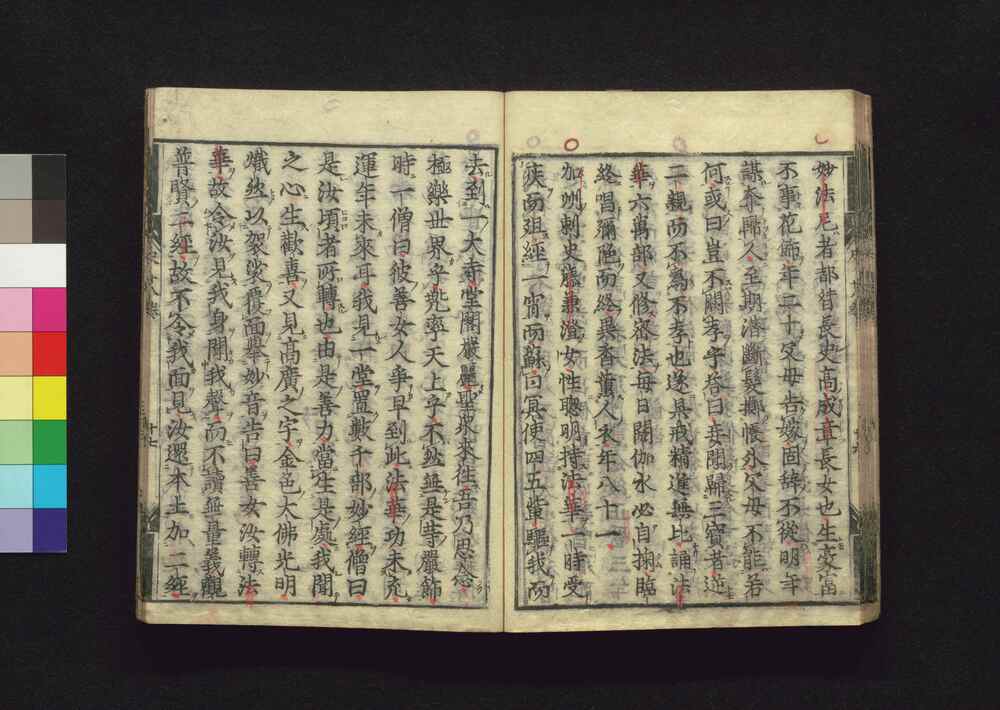 妙法尼者都督長史高成章長女也生豪富
不事花飾年二十父母告嫁固辞不從明年
謀奉歸人至期潜斷髮擲帳外父母不能若
何或曰豈不關孝乎答曰妾聞歸三寶者逆
二親而不為不孝也遂具戒精進無比誦法
華六萬部又修密法毎日閼伽水必自掬臨
終唱彌陁而終異香墳人衣年八十一
加刕刺史藤兼澄女性聰明持法華一時受
疾而殂經一宵而蘇曰冥使四五輩驅我而
去到一大寺堂閣嚴麗聖衆來往吾乃思念
極樂世界乎兜率天上乎不然無是等嚴飾
時一僧曰彼善女人争早到此法華功未充
運年未來耳我見一堂置數千部妙經僧曰
是汝頃者所轉也由是善力當生是處我聞
之心生歡喜又見高廣之宇金色大佛光明
熾然以袈裟覆面舉妙音告曰善女汝轉法
華故令汝見我身聞我聲而不讀無量義觀
普賢二經故不令我面見汝還本土加二經
十七